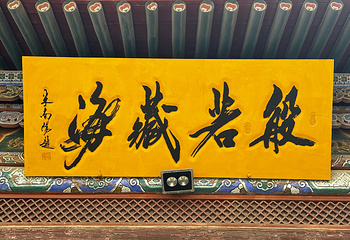 般若藏海